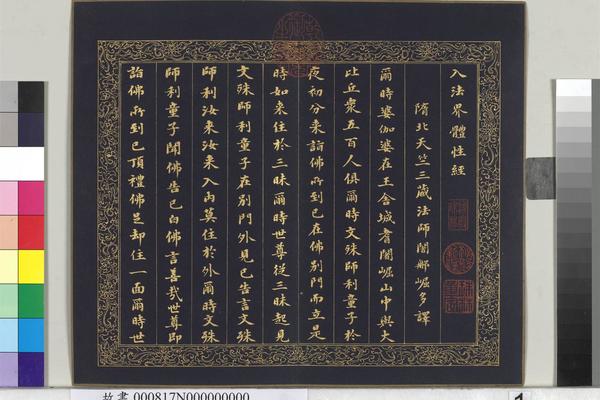 入法界體性經
隋北天竺三藏法師闍那崛多譯
爾時婆伽婆在王舍城耆闍崛山中與大
比丘衆五百人俱爾時文殊師利童子於
夜初分來詣佛所到已在佛別門而立是
時如來住於三昧爾時世尊從三昧起見
文殊師利童子在別門外見已告言文殊
師利汝來汝來入內莫住於外爾時文殊
師利童子聞佛告已白佛言善哉世尊即
詣佛所到已頂禮佛足却住一面爾時世
故書 000817N000000000